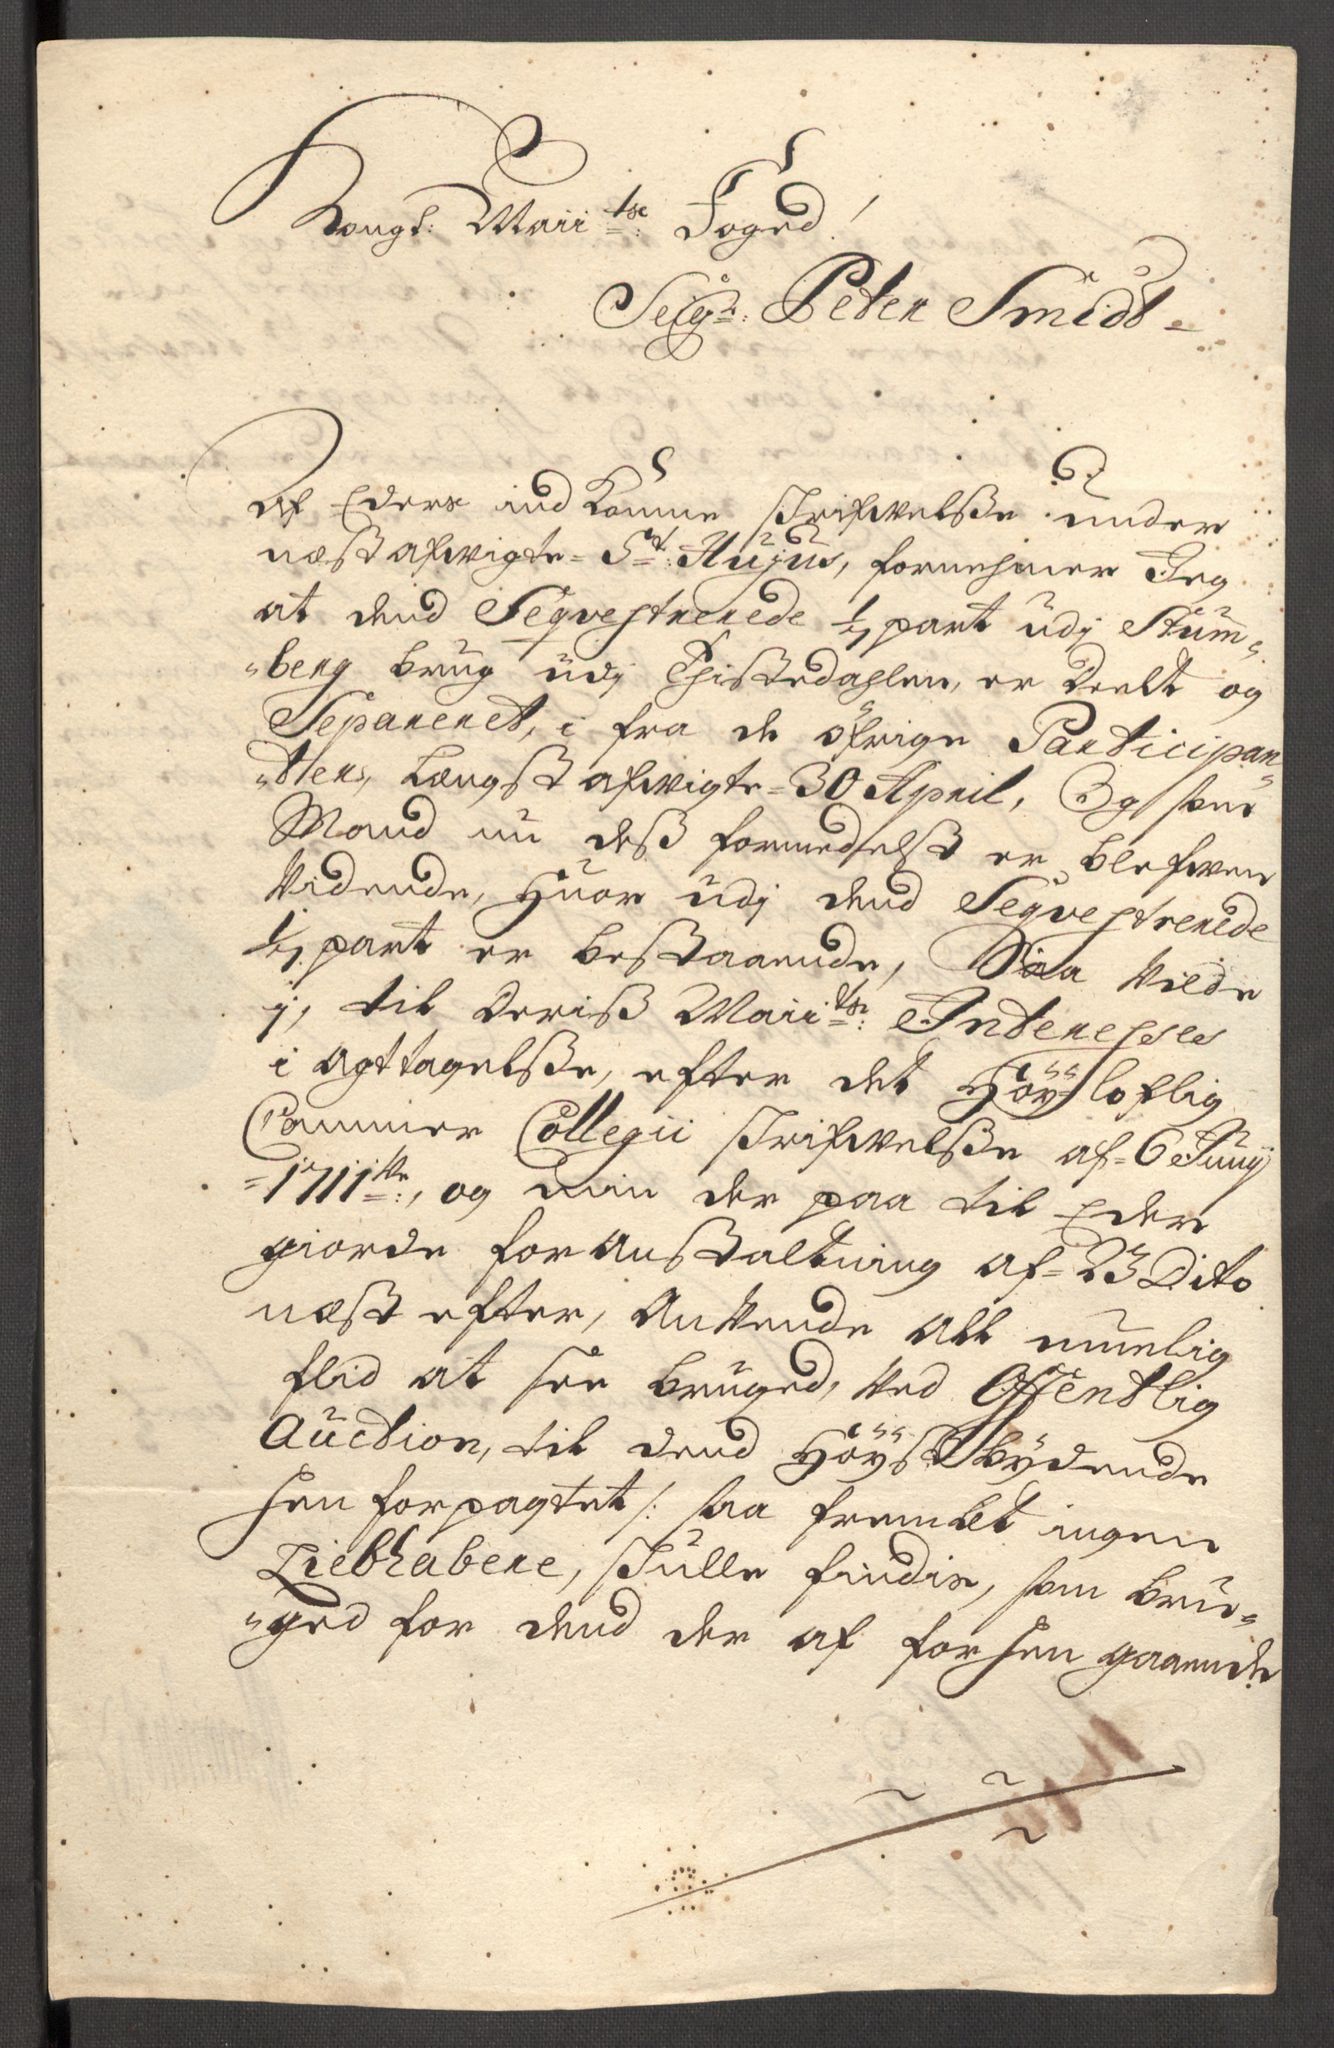 Kongl: Maii^ts: Foged!
Seig^r: Peter Smidt-
Af Eders ind Komne skrifvelsse under
næst afvigte= 5^t: Hujus, fornehmer Jeg
at dend Seqvestrerede 1/4 part udj Stum=
=berg brug udj Thistedahlen, er deelt og
Separeret, i fra de öfrige Participan=
=ter, længst afvigte= 30 April, Og som
Mand nu dess formedelst er blefven
Vidende, Huor udj dend Seqvestrerede
1/4 part er bestaaende, Saa vilde
j, til Deris Maii^ts: Interesses
i agttagelsse, efter det Höy=loflig
Cammer Collegii skrifvelsse af= 6 Junij
=1711^de:, og min der paa til Eder
giorde foranstaltning af= 23 Dito
næst efter, Anvende all muelig
flid at see bruged, ved Offentlig
Auction, til dend Höyst bydende
hen forpagtet /: saa fremt ingen
Liebhabere, skulle findis, som bru=
=ged for dend der af forhen gaaende